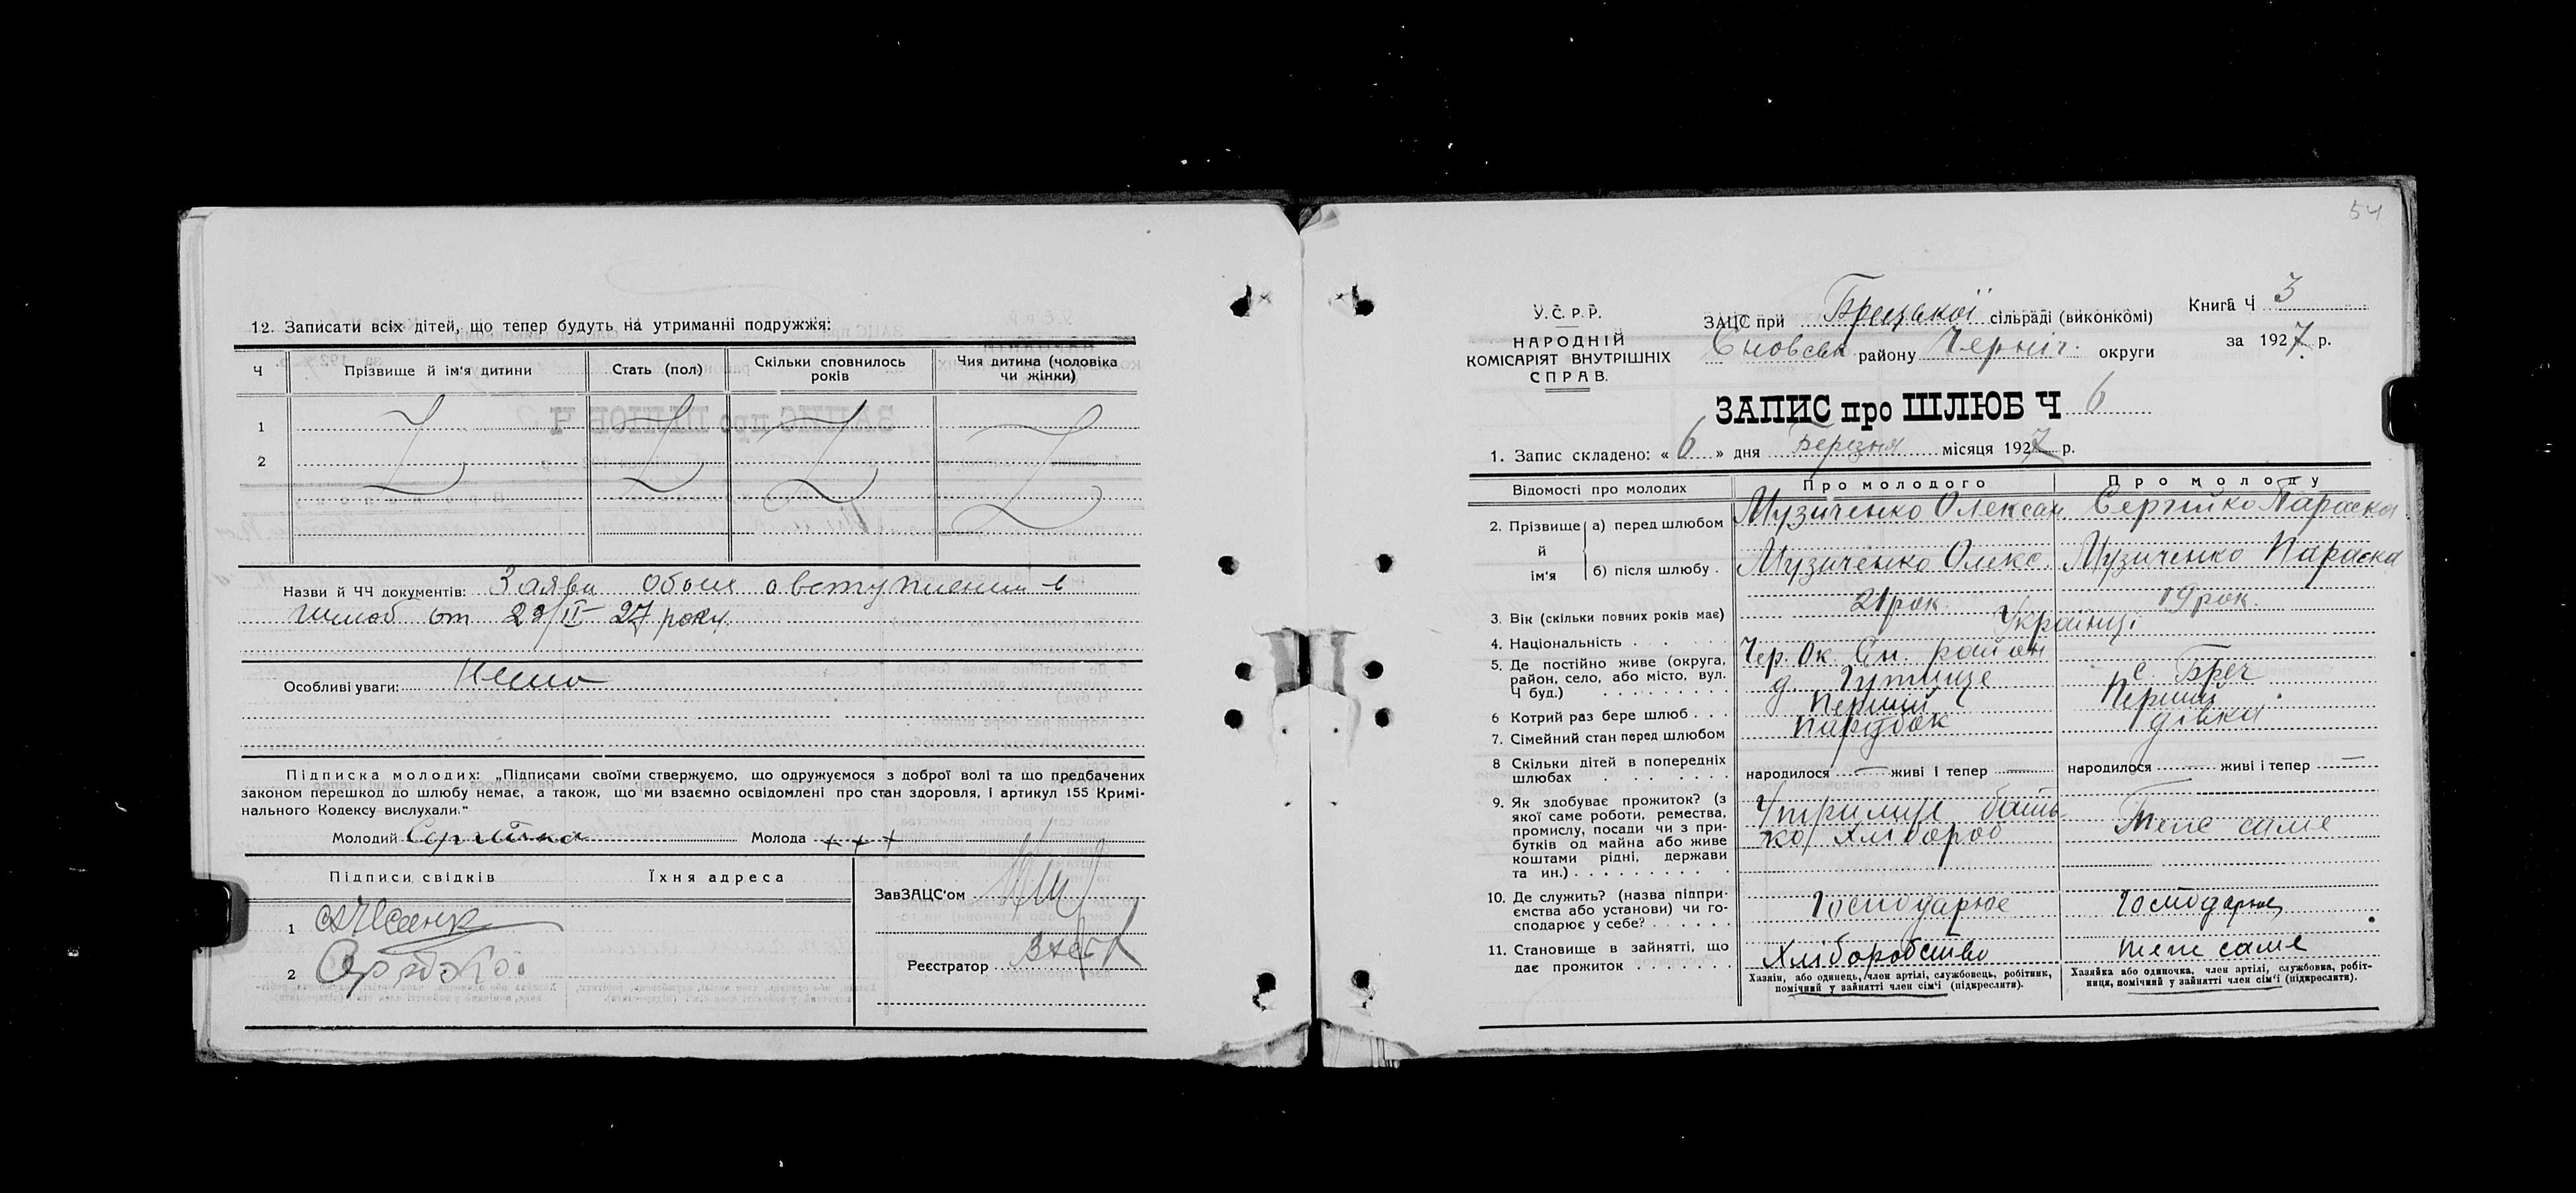 12. Записати всіх дітей, що тепер будуть на утриманні подружжя:
Ч
Прізвище й ім'я дитини
Стать (пол)
Скільки сповнилось років
Чия дитина (чоловіка чи жінки)
1
2
Назви й ЧЧ документів: Заява обоих о вступлении в
шлюб от 22/II-27 року
Особливі уваги: Нема
Підписка молодих: „Підписами своїми стверджуємо, що одружуємося з доброї волі та що предбачених
законом перешкод до шлюбу немає, а також, що ми взаємно освідомлені про стан здоровля, і артикул 155 Кримі-
нального Кодексу вислухали."
Молодий Молода + + +
Підписи свідків
Їхня адреса
1
2
ЗавЗАЦС'ом
Реєстратор
54
У.С.Р.Р.
НАРОДНІЙ
КОМІСАРІЯТ ВНУТРІШНІХ
СПРАВ.
ЗАЦС при Брецької сільраді (виконкомі)
Сновськ району Черніг. округи
Книга Ч 3
за 1927 р.
ЗАПИС про ШЛЮБ Ч 6
1. Запис складено: « 6 » дня Березня місяця 1927 р.
Відомості про молодих
Про молодого
Про молоду
2. Прізвище й ім'я
а) перед шлюбом Музиченко Олексан. Сергійко Параска
б) після шлюбу . Музиченко Олекс. Музиченко Параска
3. Вік (скільки повних років має) 21 рок. 19 рок.
4. Національність . . . . Українці
5. Де постійно живе (округа,
район, село, або місто, вул.
Ч буд.) . . . . . . . . .
Чер. Ок. Сн. район
д. Гутище
с. Бреч
6 Котрий раз бере шлюб . . . Перший Перший
7. Сімейний стан перед шлюбом Парубок дівка
8 Скільки дітей в попередніх
шлюбах . . . . . . .
народилося — живі і тепер —
народилося — живі і тепер —
9. Як здобуває прожиток? (з
якої саме роботи, ремества,
промислу, посади чи з при-
бутків од майна або живе
коштами рідні, держави
та ин.) . . . . . . . . .
Утримує бать-
ко хлібороб
Теж саме
10. Де служить? (назва підпри-
ємства або установи) чи го-
сподарює у себе? . . . . . .
Господарює
Господарює
11. Становище в зайнятті, що
дає прожиток . . . . . . .
Хліборобство
теж саме
Хазяїн, або одинець, член артілі, службовець, робітник,
помічний у зайнятті член сім'ї (підкреслити).
Хазяйка або одиночка, член артілі, службовка, робіт-
ниця, помічний у зайнятті член сім'ї (підкреслити).